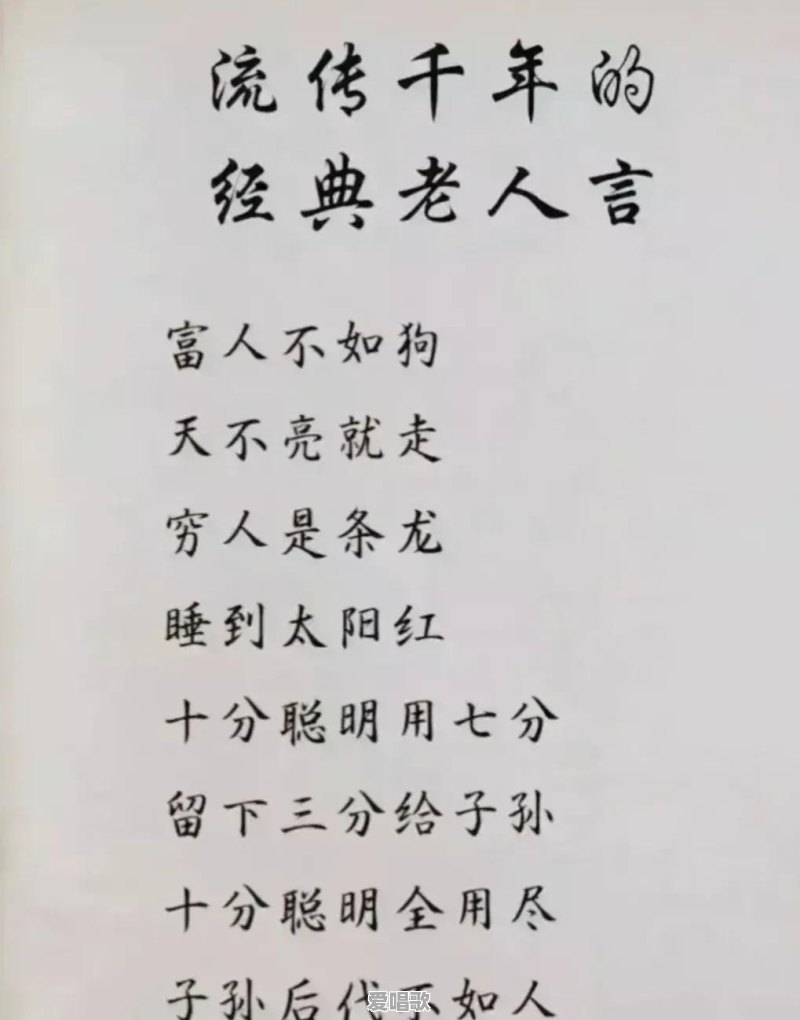 流传千年的
经典老人言
富人不如狗
天不亮就走
穷人是条龙
睡到太阳红
十分聪明用七分
留下三分给子孙
十分聪明全用尽
子孙后代不如人
爱唱歌